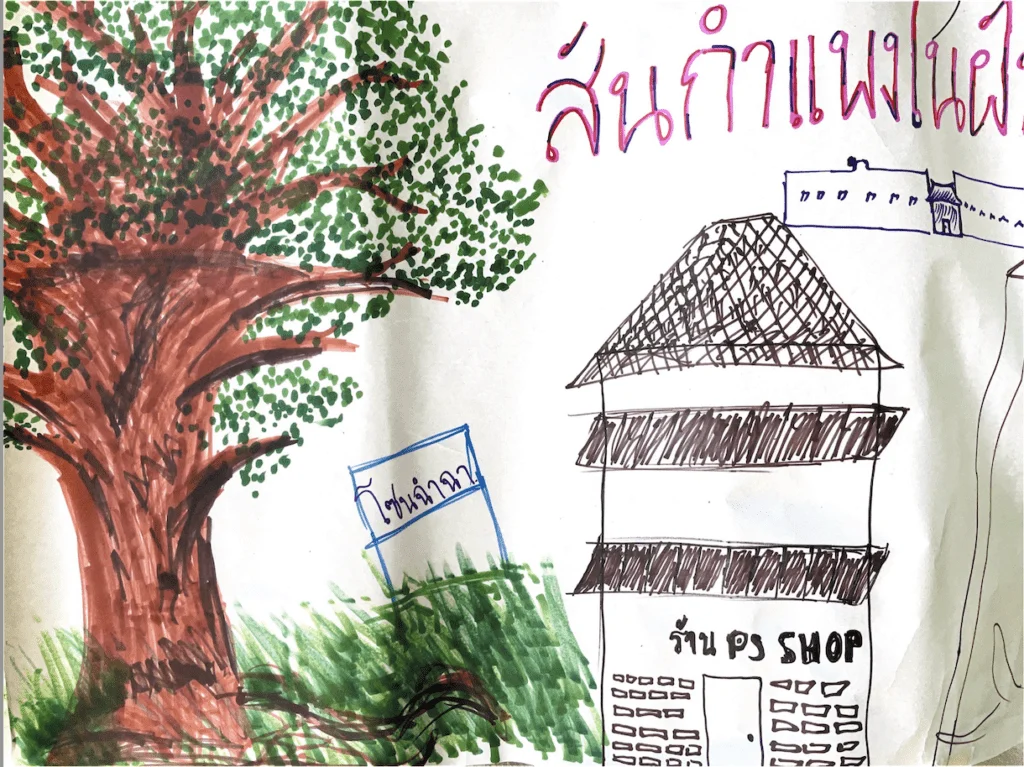 สันกำแพงในฝั
โซนฉำฉา
ร้าน PS SHOP